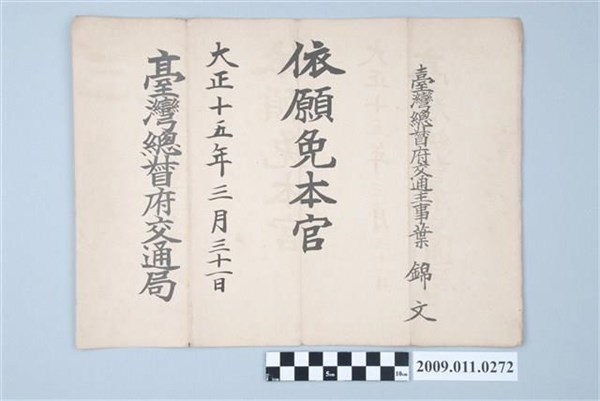 臺灣總督府交通主事葉錦文
依願免本官
大正十五年三月三十一日
臺灣總督府交通局
5cm
10cm
2009.011.0272